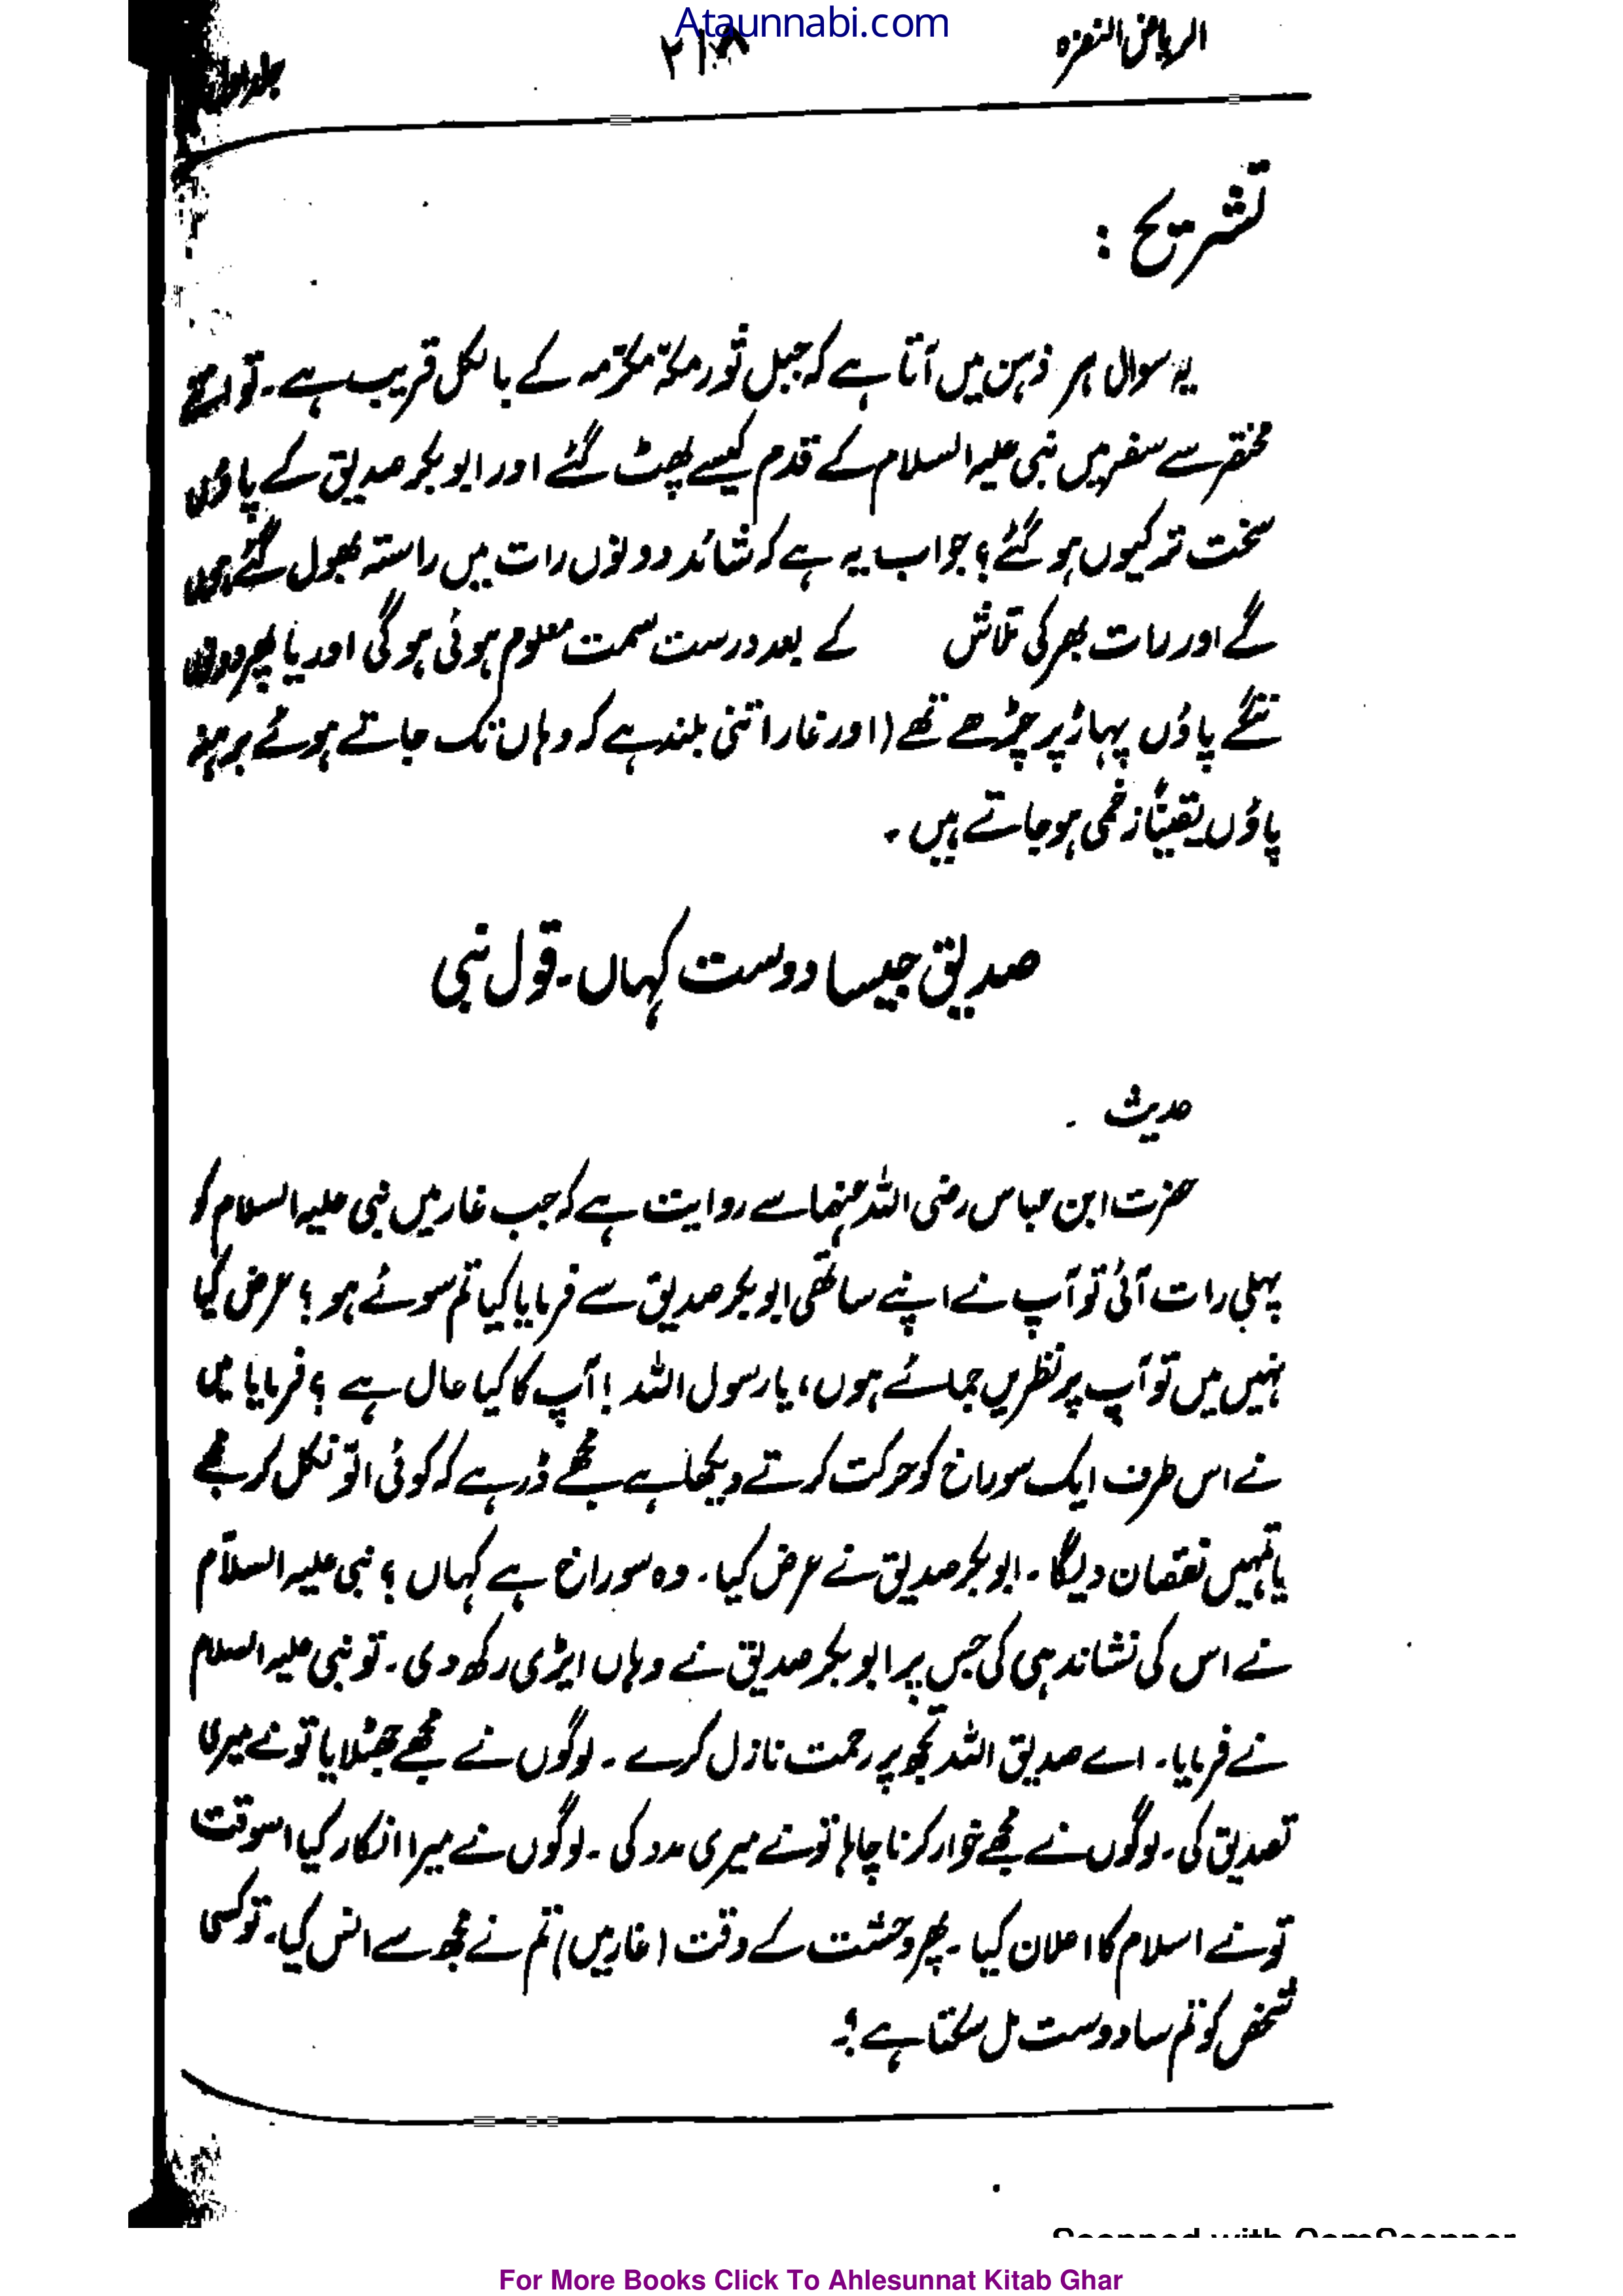 Ataunnabi.com
الریاض النضرہ
۲۱۸
جلد اول
تشریح :
یہ سوال ہر ذہن میں آتا ہے کہ جبل ثور مکۃ مکرّمہ کے بالکل قریب ہے۔ تو اتنے
مختصر سے سفر میں نبی علیہ السلام کے قدم کیسے پھٹ گئے اور ابوبکر صدیق کے پاؤں
سخت تر کیوں ہو گئے؟ جواب یہ ہے کہ شائد دونوں رات میں راستہ بھول گئے ہوں
گے اور رات بھر کی تلاش کے بعد درست سمت معلوم ہوئی ہو گی اور یا پھر دونوں
ننگے پاؤں پہاڑ پر چڑھے تھے (اور غار اتنی بلند ہے کہ وہاں تک جاتے ہوئے برہنہ
پاؤں یقیناً زخمی ہو جاتے ہیں ۔
صدیق جیسا دوست کہاں۔ قول نبی
حدیث ۔
حضرت ابن عباس رضی اللہ عنہما سے روایت ہے کہ جب غار میں نبی علیہ السلام کو
پہلی رات آئی تو آپ نے اپنے ساتھی ابوبکر صدیق سے فرمایا کیا تم سوئے ہو؟ عرض کیا
نہیں میں تو آپ پر نظریں جمائے ہوں، یا رسول اللہ! آپ کا کیا حال ہے ؟ فرمایا میں
نے اس طرف ایک سوراخ کو حرکت کرتے دیکھا ہے مجھے ڈر ہے کہ کوئی اتو نکل کر مجھے
یا تمہیں نقصان دیگا ۔ ابوبکر صدیق نے عرض کیا ۔ وہ سوراخ ہے کہاں ؟ نبی علیہ السلام
نے اس کی نشاندہی کی جس پر ابوبکر صدیق نے وہاں ایڑی رکھ دی ۔ تو نبی علیہ السلام
نے فرمایا ۔ اے صدیق اللہ تجھ پر رحمت نازل کرے ۔ لوگوں نے مجھے جھٹلایا تو نے میری
تصدیق کی ۔ لوگوں نے مجھے خوار کرنا چاہا تو نے میری مدد کی ۔ لوگوں نے میرا انکار کیا اسوقت
تو نے اسلام کا اعلان کیا ۔ پھر وحشت کے وقت (غار میں) تم نے مجھ سے انس کیا ۔ تو کسی
شخص کو تم سا دوست مل سکتا ہے ؟
Scanned with CamScanner
For More Books Click To Ahlesunnat Kitab Ghar